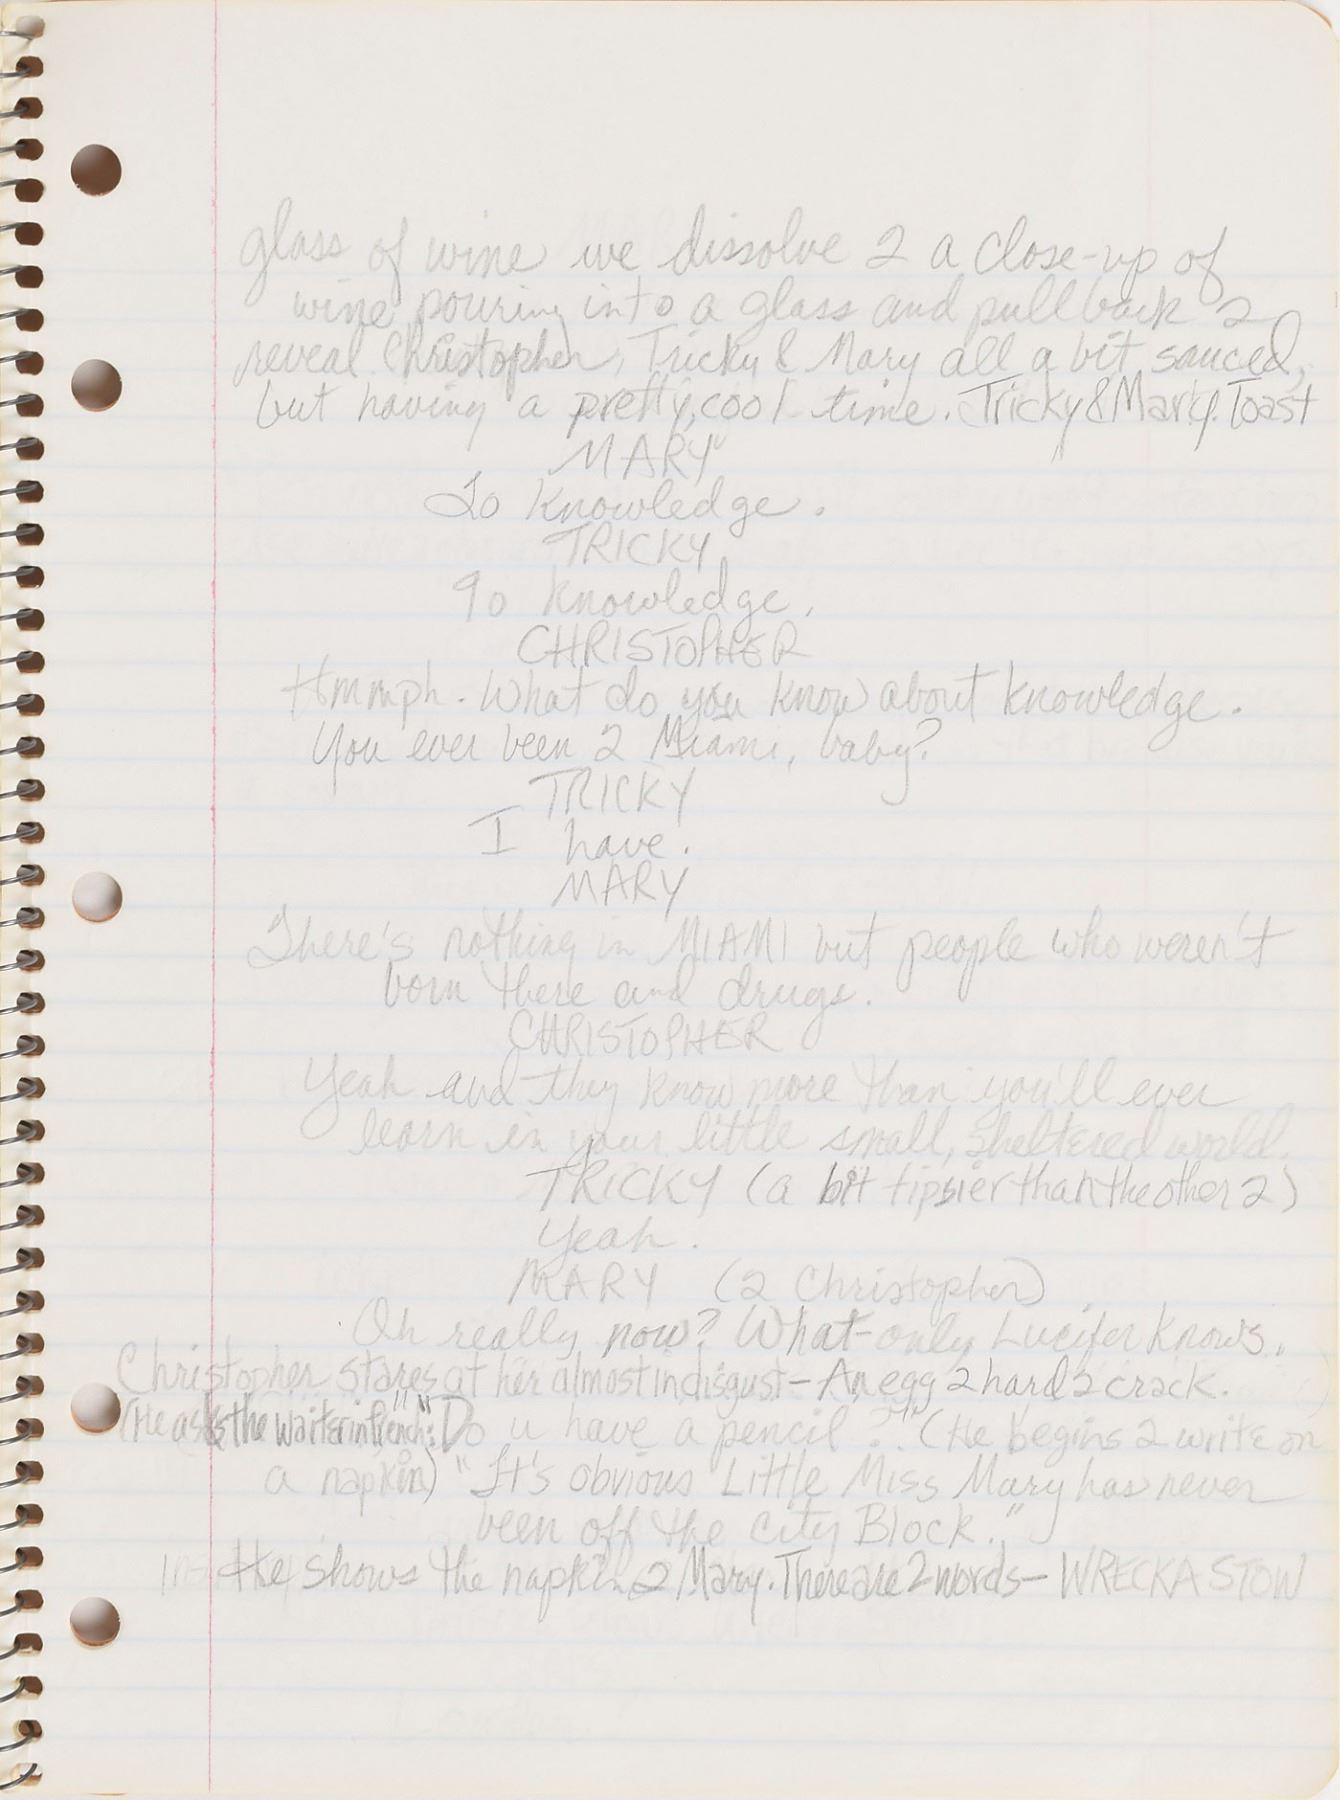 glass of wine we dissolve 2 a close-up of
wine pouring into a glass and pull back 2
reveal Christopher, Tricky & Mary all a bit sauced,
but having a pretty cool time. Tricky & Mary Toast
MARY
To knowledge.
TRICKY
To knowledge.
CHRISTOPHER
Hmmph. What do you know about knowledge.
You ever been 2 Miami, baby?
TRICKY
I have.
MARY
There's nothing in MIAMI but people who weren't
born there and drugs.
CHRISTOPHER
Yeah and they know more than you'll ever
learn in your little small, sheltered world.
TRICKY (a bit tipsier than the other 2)
Yeah.
MARY (2 Christopher)
Oh really now? What only Lucifer knows.
Christopher stares at her almost in disgust – An egg 2 hard 2 crack.
(He asks the waiter in french: "Do u have a pencil?" (He begins 2 write on
a napkin) "It's obvious Little Miss Mary has never
been off the city Block."
He shows the napkin 2 Mary. There are 2 words – WRECKA STOW